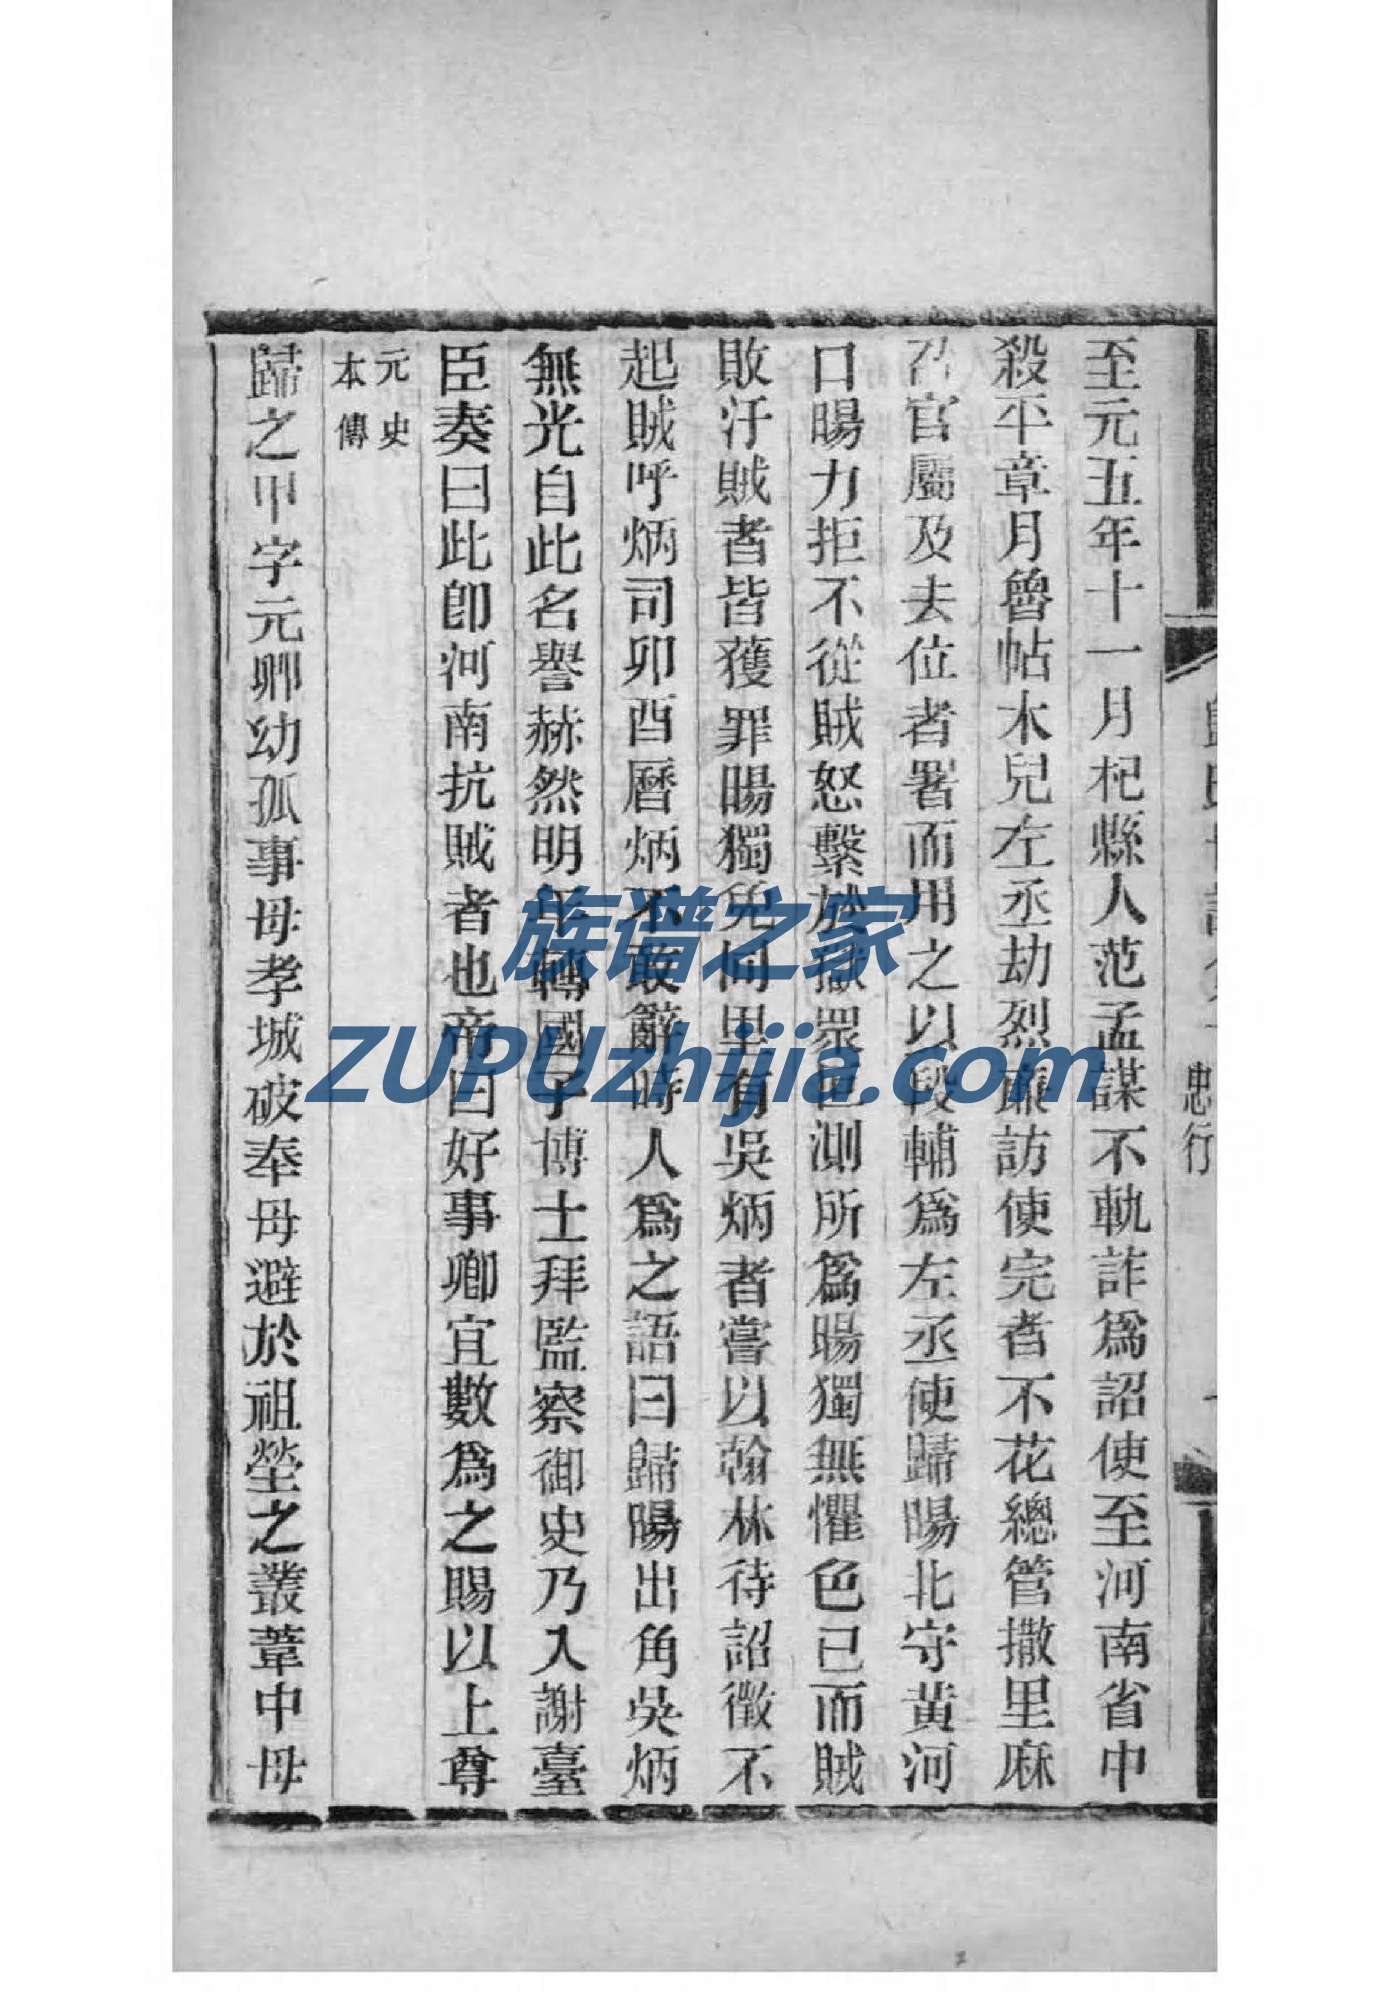 至元五年十一月杞縣人范孟謀不軌詐爲詔使至河南省中
殺平章月魯帖木兒左丞劫烈廉訪使完者不花總管撒里麻
召官屬及去位者署而用之以段輔爲左丞使歸暘北守黃河
口暘力拒不從賊怒繫於獄眾叵測所爲暘獨無懼色已而賊
敗汙賊者皆獲罪暘獨免同里有吳炳者嘗以翰林待詔徵不
起賊呼炳司卯酉曆炳不敢辭時人爲之語曰歸暘出角吳炳
無光自此名譽赫然明年轉國子博士拜監察御史乃入謝臺
臣奏曰此卽河南抗賊者也帝曰好事卿宜數爲之賜以上尊
元史
本傳
歸之甲字元卿幼孤事母孝城破奉母避於祖塋之叢葦中母
忠行
族谱之家
ZUPUzhijia.com